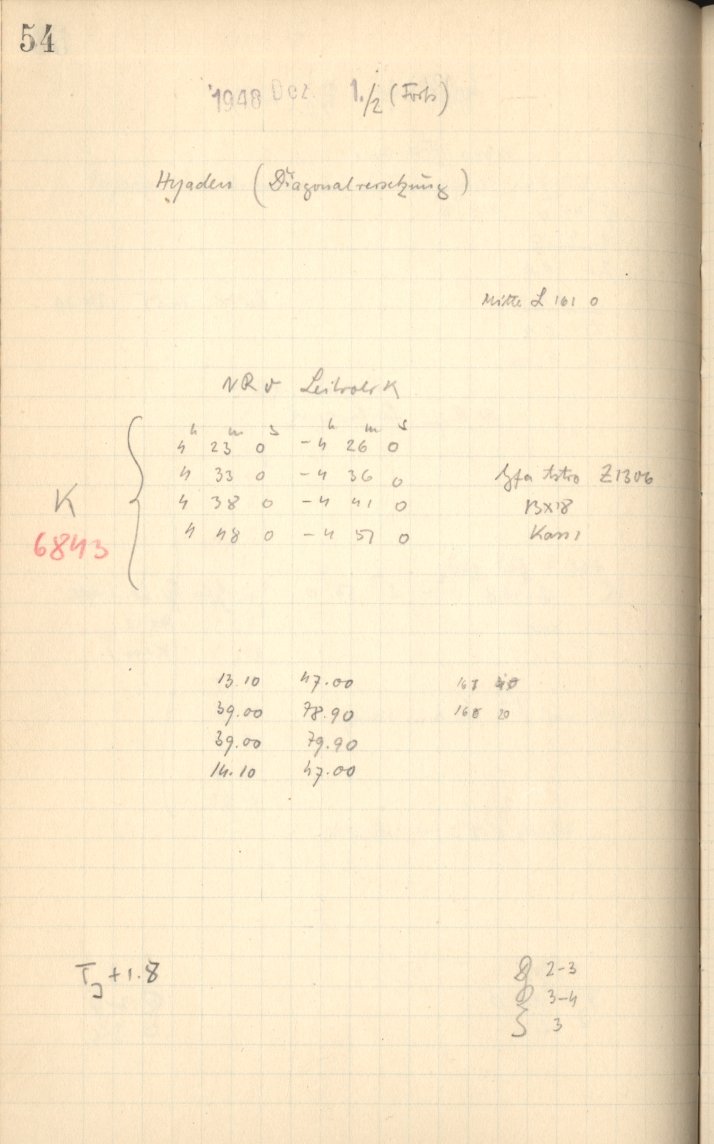 54
1948 Dez. 1./2 (Forts)
Hyaden (Diagonalversetzung)
Mitte L 161 0
NR v Leitrohr K
h m s h m s
4 23 0 -4 26 0
4 33 0 -4 36 0 Agfa Astro Z1306
K 4 38 0 -4 41 0 BX18
6843 4 48 0 -4 51 0
13.10 47.00
39.00 78.90 20
39.00 79.90
14.10 47.00
T J +1.8
2-3
3-4
3